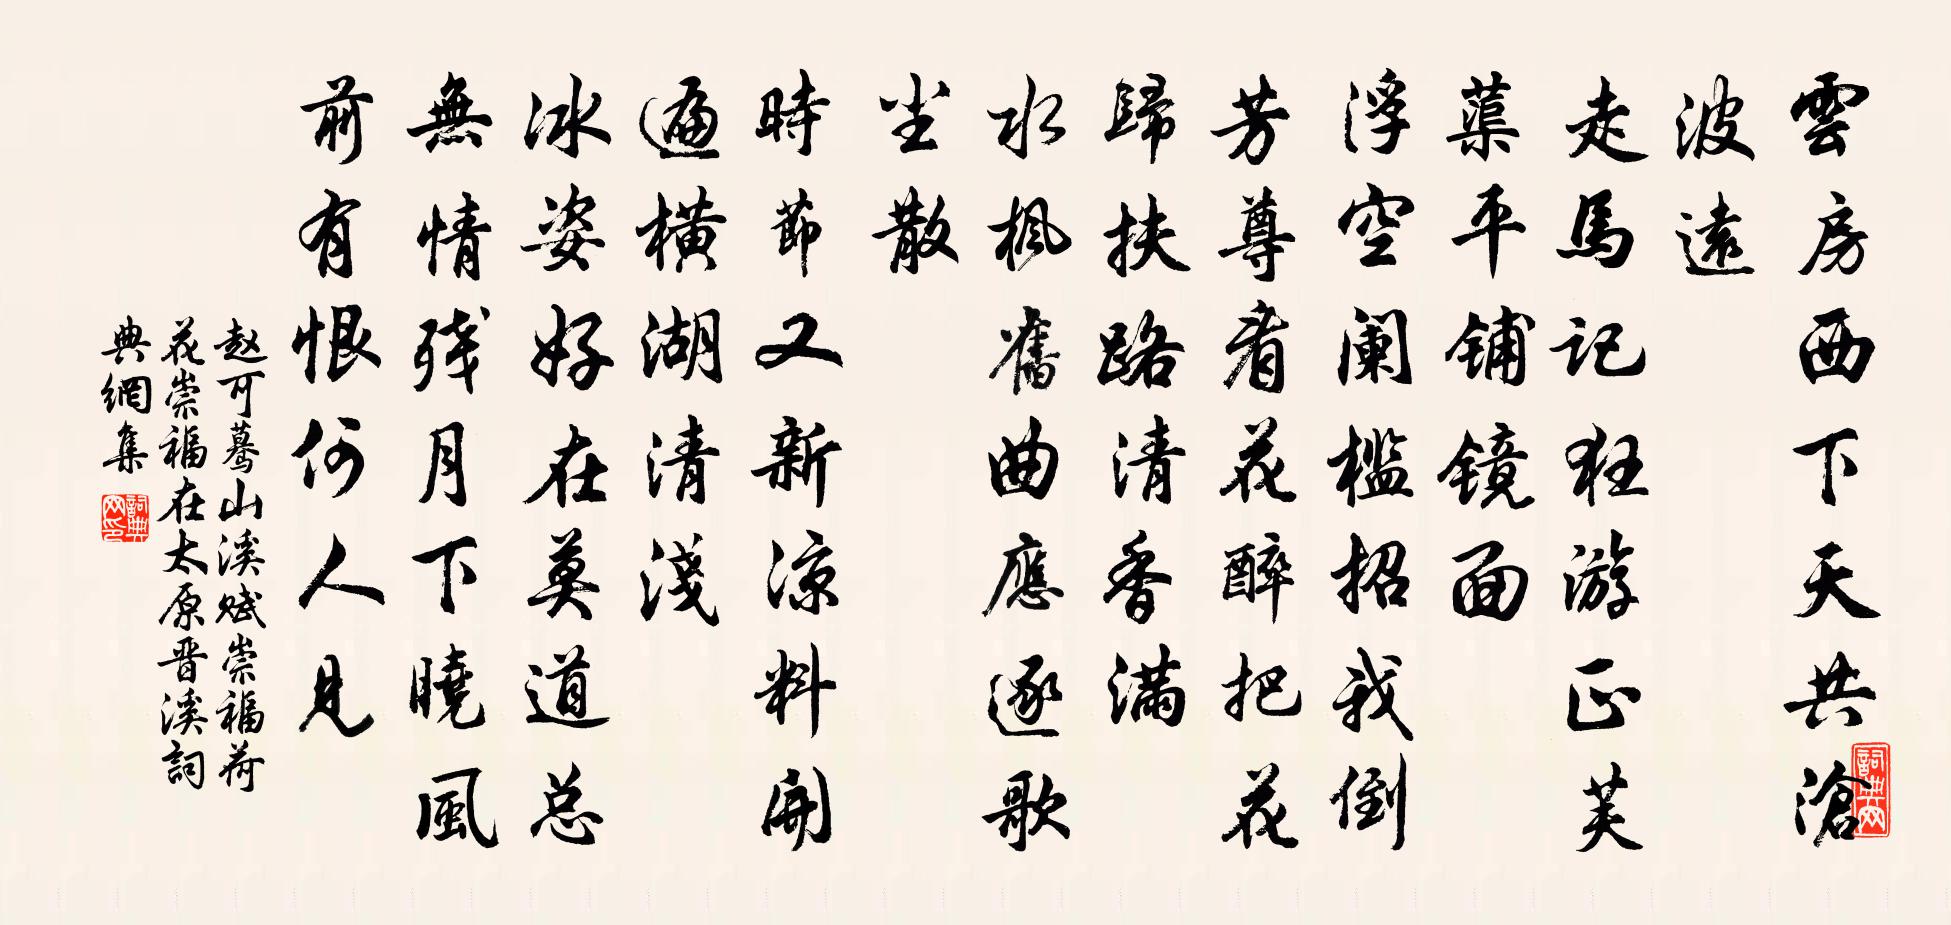 雲房西下天共滄
波遠
走馬记狂游正芙
蕖平铺镜面
浮空阑槛招我倒
芳尊看花醉把花
歸扶路清香滿
水枫舊曲應逐歌
尘散
時節又新凉料開
遍橫湖清淺
冰姿好在莫道总
無情残月下曉風
前有恨何人見
赵可蓦山溪赋崇福荷
花崇福在太原晋溪詞
典網集
詞典网
詞典网印